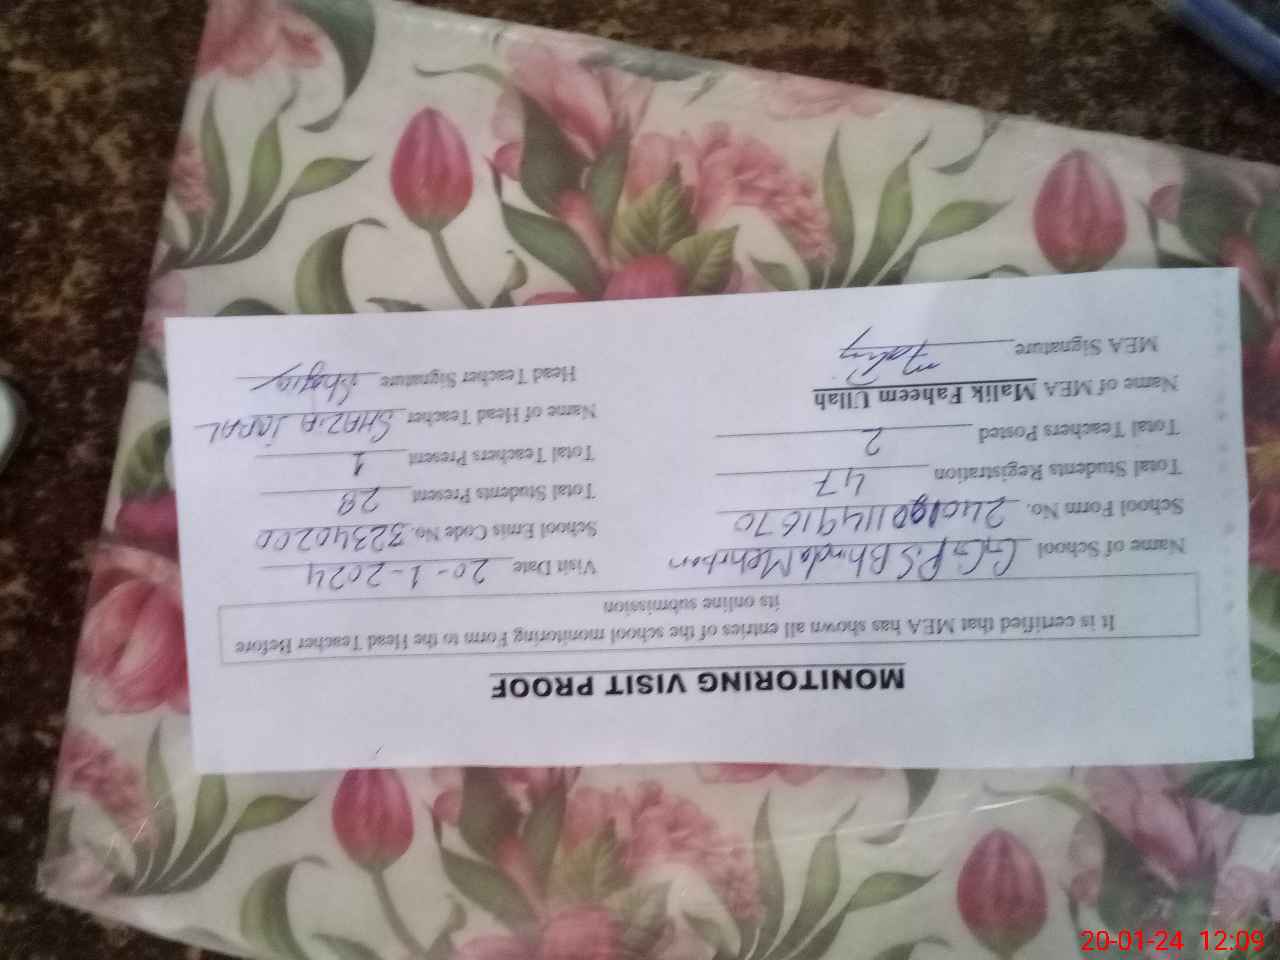 MONITORING VISIT PROOF
It is certified that MEA has shown all entries of the school monitoring Form to the Head Teacher Before
its online submission
Name of School GGPS Bhinda Mehrban Visit Date 20-1-2024
School Form No. School Emis Code No. 32340200
Total Students Registration 47 Total Students Present 28
Total Teachers Posted 2 Total Teachers Present 1
Name of MEA Malik Faheem Ullah Name of Head Teacher SHAZIA IQBAL
MEA Signature Head Teacher Signature Shazia
20-01-24 12:09